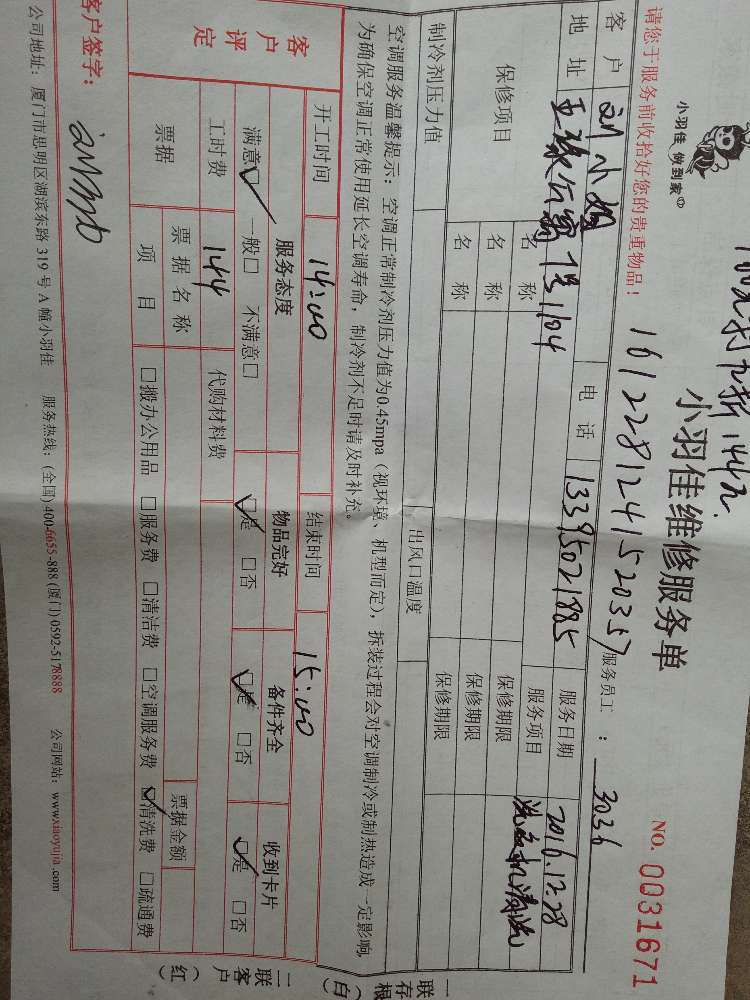 打九折 144元
小羽佳 做到家
小羽佳维修服务单
NO. 0031671
1612281241520357
请您于服务前收拾好您的贵重物品！
服务员工 ： 3036
客户 刘小姐 电话 13395021885 服务日期 2016.12.28
地址 1号1104 服务项目 洗衣机清洗
保修项目 名称 保修期限
名称 保修期限
名称 保修期限
制冷剂压力值 出风口温度
空调服务温馨提示：空调正常制冷剂压力值为0.45mpa（视环境、机型而定），拆装过程会对空调制冷或制热造成一定影响，
为确保空调正常使用延长空调寿命，制冷剂不足时请及时补充。
开工时间 14:00 结束时间 15:00
客户评定 服务态度 物品完好 备件齐全 收到卡片
满意☑ 一般□ 不满意□ ☑是 □否 ☑是 □否 ☑是 □否
工时费 144 代购材料费
票据 票据名称 票据金额
项目 □搬办公用品 □服务费 □清洁费 □空调服务费 ☑清洗费 □疏通费
客户签字：
公司地址：厦门市思明区湖滨东路 319 号 A 幢小羽佳 服务热线：(全国) 400-6655-888 (厦门) 0592-5178888 公司网站：www.xiaoyujia.com
一联存根（白）
二联客户（红）